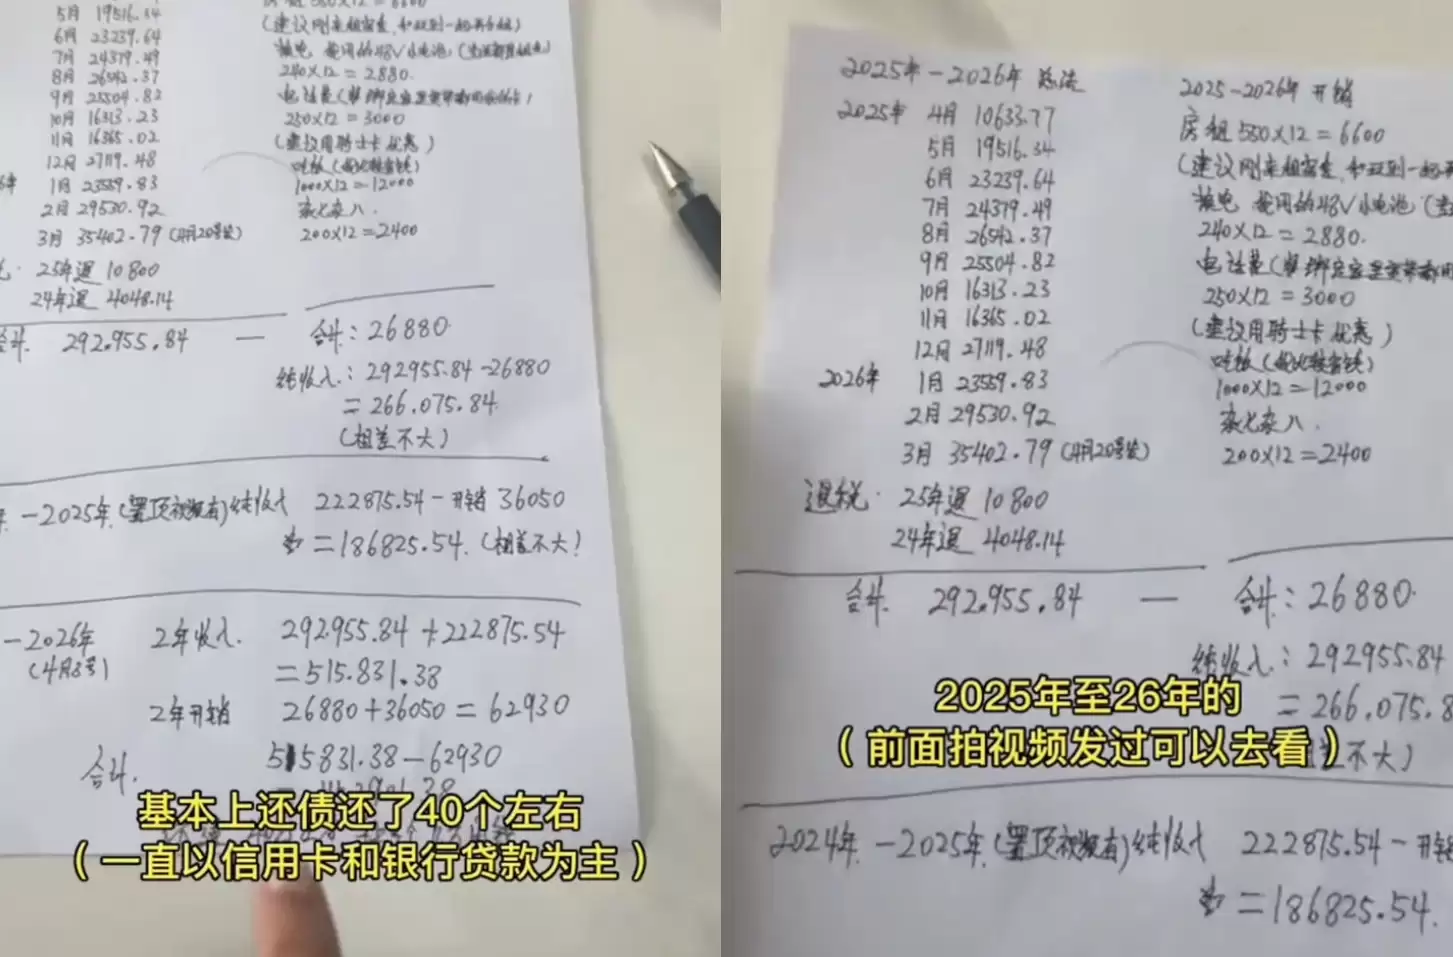 5月 19516.34
6月 23239.64
7月 24379.49
8月 26542.37
9月 25504.82
10月 16313.23
11月 16365.02
12月 27119.48
1月 23559.83
2月 29530.92
3月 35402.79 (4月20号发)
25年退 10800
24年退 4048.14
合计. 292.955.84 —
(建议刚来租宿舍,
240×12=2880.
250×12=3000
(建议用骑士卡优惠)
1000×12=12000
杂七杂八.
200×12=2400
合计: 26880
纯收入: 292955.84-26880
=266.075.84
(相差不大)
-2025年(置顶视频有)纯收入 222875.54-开销 36050
=186825.54. (相差不大!
-2026年
(4月8号)
2年收入. 292955.84+222875.54
=515.831.38
2年开销 26880+36050=62930
合计. 515831.38-62930
基本上还债还了40个左右
(一直以信用卡和银行贷款为主)
2025年-2026年 总流
2025年 4月 10633.77
5月 19516.34
6月 23239.64
7月 24379.49
8月 26542.37
9月 25504.82
10月 16313.23
11月 16365.02
12月 27119.48
2026年 1月 23559.83
2月 29530.92
3月 35402.79 (4月20号发)
退税. 25年退 10800
24年退 4048.14
合计. 292.955.84 —
2025-2026年 开销
房租 550×12=6600
(建议刚来租宿舍,
换电 使用的48V小电池
240×12=2880.
电话费
250×12=3000
(建议用骑士卡优惠)
1000×12=12000
杂七杂八.
200×12=2400
合计: 26880.
纯收入: 292955.84
=266.075.8
差不大)
2025年至26年的
(前面拍视频发过可以去看)
2024年-2025年(置顶视频有)纯收入 222875.54-开销
=186825.54.